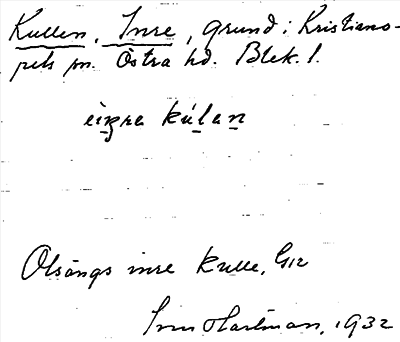 Kullen, Inre, grund i Kristiano-
pels sn. Östra hd. Blek. l.
kúlan
Olsängs inre kulle, G12
Hartman, 1932